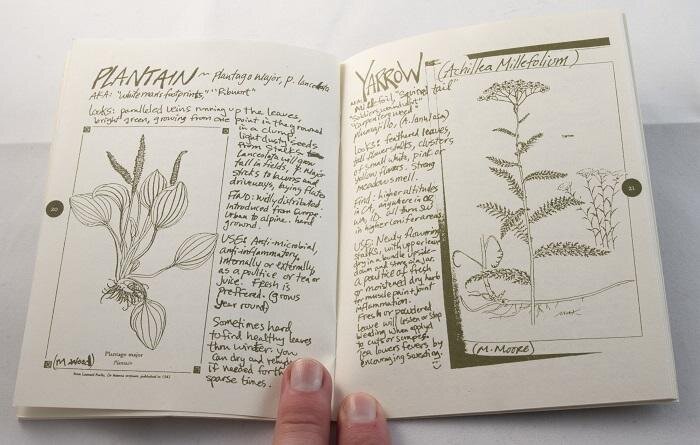 PLANTAIN ~ Plantago major, P. lanceolata
AKA: "Whiteman's footprints," "Ribwort"
Looks: paralleled veins running up the leaves,
bright green, growing from one point in the ground
in a clump,
light dusty seeds
from stalks.
Lanceolata will grow
tall in fields, P. major
sticks to lawns and
driveways, laying flatis
FIND: widly distributed
Introduced from Europe.
Urban to alpine. hard
ground.
USE: Anti-microbial,
anti-inflammatory.
internally or externally,
as a poultice or tea or
juice. Fresh is
preferred. (grows
year round)
Sometimes hard
to find healthy leaves
thru winter. you
can dry and rehydrate
if needed for the
sparse times.
20
Plantago major
Plantain
(M. Wood)
YARROW (Achillea Millefolium)
AKA: Milfoil, "Squirrel tail"
"Soldiers woundwort"
"Carpenters weed"
Plumajillo, (A. lanulosa)
Looks: feathered leaves,
tall flower stalks, clusters
of small white, pink or
yellow flowers. strong
meadow smell.
Find: higher altitudes
in CA, anywhere in OR,
WA, ID. all turn
in higher conifer areas.
USE: Newly flowering
stalks, with upper leaves
dry in a bundle upside-
down and store in jar.
a poultice of fresh
or moistened dry herb
for muscle pain + joint
inflammation.
Fresh or powdered
leave will lessen or stop
bleeding when applyed
to cuts or scrapes.
Tea lowers fevers by
encouraging sweating.
21
(M. MOORE)